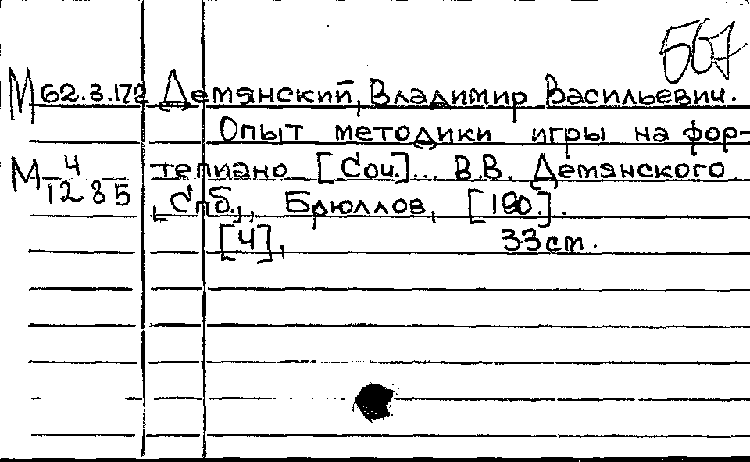 567
М 62.3.172 Демянский, Владимир Васильевич.
Опыт методики игры на фор-
М 4/1285 тепиано [Соч.]... В.В. Демянского
[Спб.], Брюллов, [190.].
[4], 33 ст.